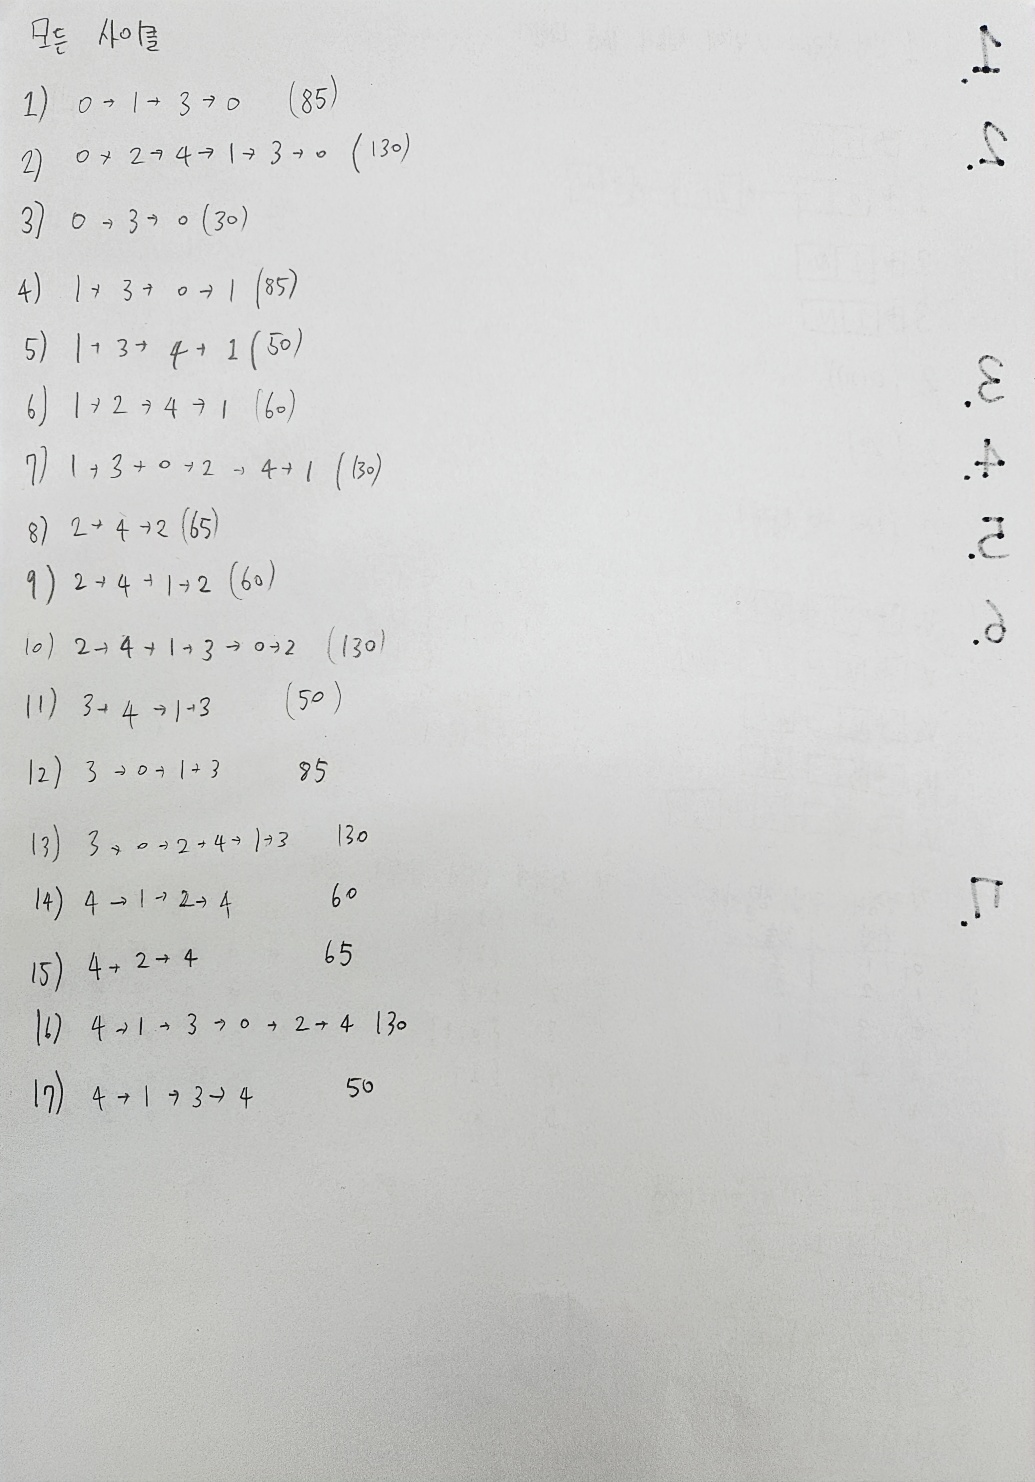 모든 사이클
1) 0→1→3→0 (85)
2) 0→2→4→1→3→0 (130)
3) 0→3→0 (30)
4) 1→3→0→1 (85)
5) 1→3→4→1 (50)
6) 1→2→4→1 (60)
7) 1→3→0→2→4→1 (130)
8) 2→4→2 (65)
9) 2→4→1→2 (60)
10) 2→4→1→3→0→2 (130)
11) 3→4→1→3 (50)
12) 3→0→1→3 85
13) 3→0→2→4→1→3 130
14) 4→1→2→4 60
15) 4→2→4 65
16) 4→1→3→0→2→4 130
17) 4→1→3→4 50
1.
2.
3.
4.
5.
6.
7.